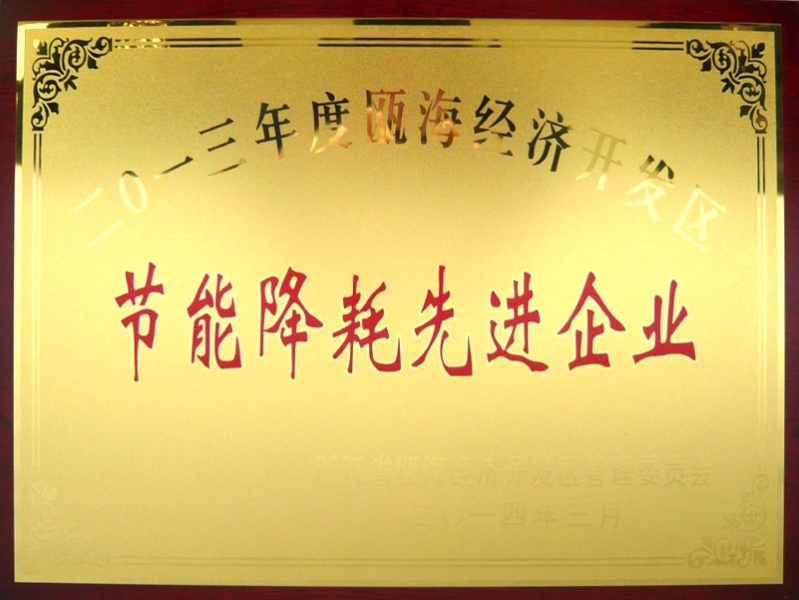 二〇一三年度瓯海经济开发区
节能降耗先进企业
浙江省瓯海经济开发区管理委员会
二〇一四年三月